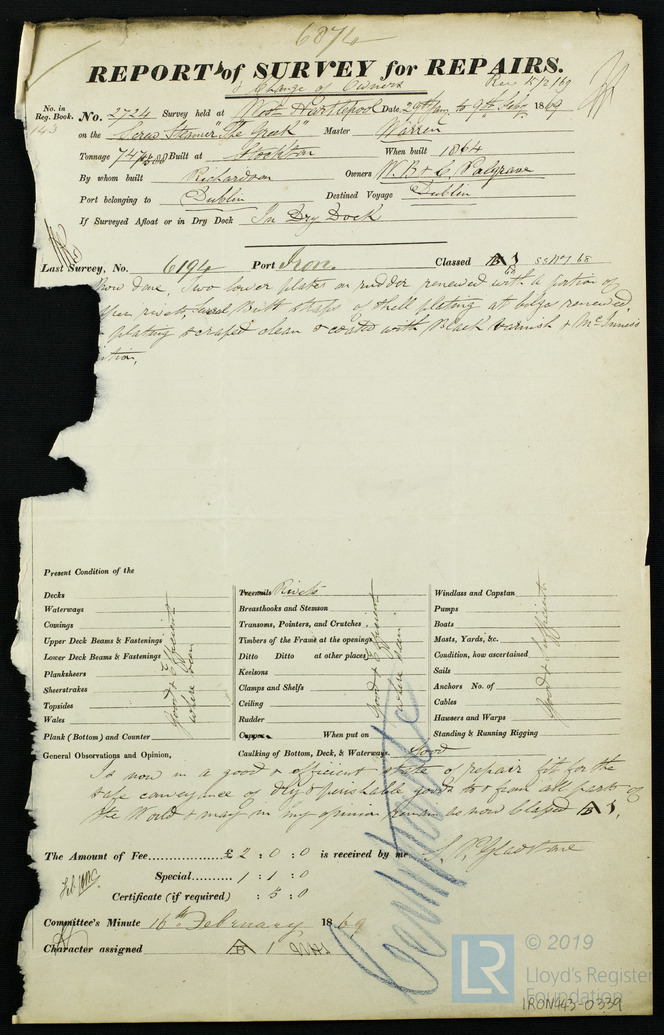 6874
REPORT of SURVEY for REPAIRS.
& Change of Owners
Rec 15/2/69
No. in Reg. Book. 143
No. 2724 Survey held at West Hartlepool Date, 29th Jan. to 9th Feby. 1869
on the Screw Steamer "The Greek" Master Warren
Tonnage 747 Built at Stockton When built 1864
By whom built Richardson Owners W. B & C. Palgrave
Port belonging to Dublin Destined Voyage Dublin
If Surveyed Afloat or in Dry Dock In Dry Dock
Last Survey, No. 6194 Port Iron. Classed A 1 SS No 1 68
Now done, Two lower plates on rudder renewed with a portion of
rivets, Butt straps of shell plating at bilges renewed,
plating scraped clean & coated with Black Varnish & McInness
Present Condition of the
Decks
Waterways
Comings
Upper Deck Beams & Fastenings
Lower Deck Beams & Fastenings
Planksheers
Sheerstrakes
Topsides
Wales
Plank (Bottom) and Counter
Good & Efficient
where seen
Treenails Rivets
Breasthooks and Stemson
Transoms, Pointers, and Crutches
Timbers of the Frame at the openings
Ditto Ditto at other places
Keelsons
Clamps and Shelfs
Ceiling
Rudder
Copper When put on
Caulking of Bottom, Deck, & Waterways. Good
Good & Efficient
where seen
Windlass and Capstan
Pumps
Boats
Masts, Yards, &c.
Condition, how ascertained
Sails
Anchors No. of
Cables
Hawsers and Warps
Standing & Running Rigging
Good & Efficient
General Observations and Opinion,
Is now in a good & efficient state of repair fit for the
safe conveyance of dry & perishable goods to & from all parts of
the World & may in my opinion remain as now Classed A 1.
The Amount of Fee £2 : 0 : 0 is received by me
Special 1 : 1 : 0
Certificate (if required) : 5 : 0
Committee's Minute 16th February 1869
Character assigned A 1
LR
© 2019
Lloyd's Register
Foundation
IRON443-0339